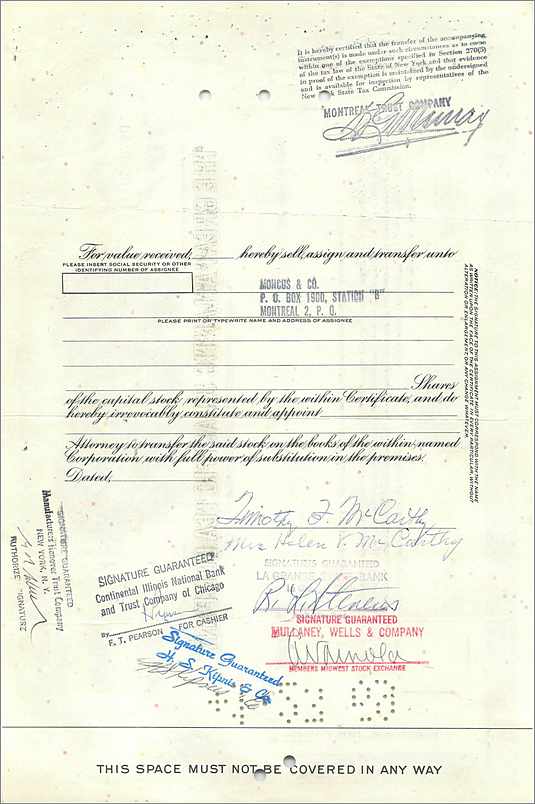 It is hereby certified that the transfer of the accompanying
instrument(s) is made under such circumstances as to come
within one of the exemptions specified in Section 270(5)
of the tax law of the State of New York and that evidence
in proof of the exemption is maintained by the undersigned
and is available for inspection by representatives of the
New York State Tax Commission.
MONTREAL TRUST COMPANY
For value received, hereby sell, assign and transfer unto
PLEASE INSERT SOCIAL SECURITY OR OTHER
IDENTIFYING NUMBER OF ASSIGNEE
MONCUS & CO.
P. O. BOX 1900, STATION "B"
MONTREAL 2, P. Q.
PLEASE PRINT OR TYPEWRITE NAME AND ADDRESS OF ASSIGNEE
Shares
of the capital stock represented by the within Certificate, and do
hereby irrevocably constitute and appoint
Attorney to transfer the said stock on the books of the within-named
Corporation with full power of substitution in the premises.
Dated,
NOTICE: THE SIGNATURE TO THIS ASSIGNMENT MUST CORRESPOND WITH THE NAME
AS WRITTEN UPON THE FACE OF THE CERTIFICATE IN EVERY PARTICULAR, WITHOUT
ALTERATION OR ENLARGEMENT OR ANY CHANGE WHATEVER.
Timothy F. McCarthy
Mrs Helen V. McCarthy
SIGNATURE GUARANTEED
Manufacturers Hanover Trust Company
NEW YORK, N. Y.
AUTHORIZED SIGNATURE
SIGNATURE GUARANTEED
Continental Illinois National Bank
and Trust Company of Chicago
BY
F. T. PEARSON FOR CASHIER
SIGNATURE GUARANTEED
LA GRANGE BANK
SIGNATURE GUARANTEED
MULLANEY, WELLS & COMPANY
MEMBERS MIDWEST STOCK EXCHANGE
Signature Guaranteed
H. S. Kipnis & Co.
THIS SPACE MUST NOT BE COVERED IN ANY WAY